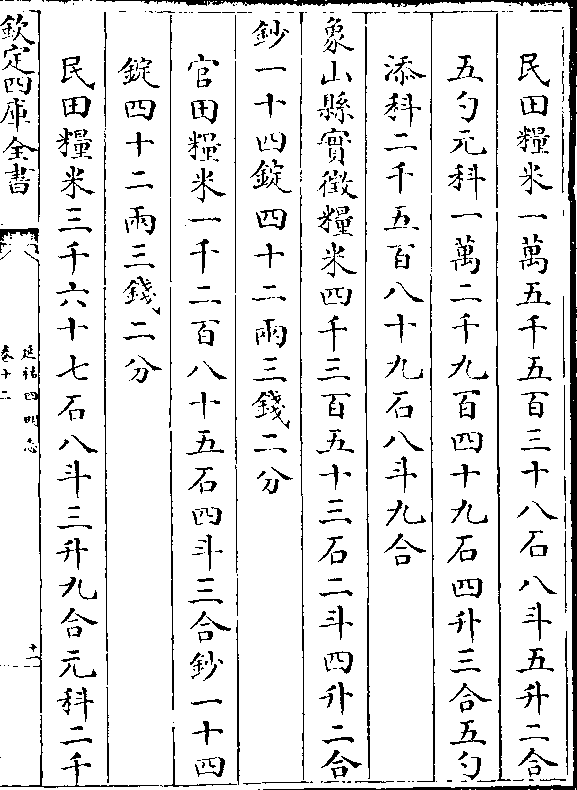 民田糧米一萬五千五百三十八石八斗五升二合
五勺元科一萬二千九百四十九石四升三合五勺
添科二千五百八十九石八斗九合
象山縣實徵糧米四千三百五十三石二斗四升二合
鈔一十四錠四十二兩三錢二分
官田糧米一千二百八十五石四斗三合鈔一十四
錠四十二兩三錢二分
民田糧米三千六十七石八斗三升九合元科二千
欽定四庫全書
延祐四明志
卷十二
十一